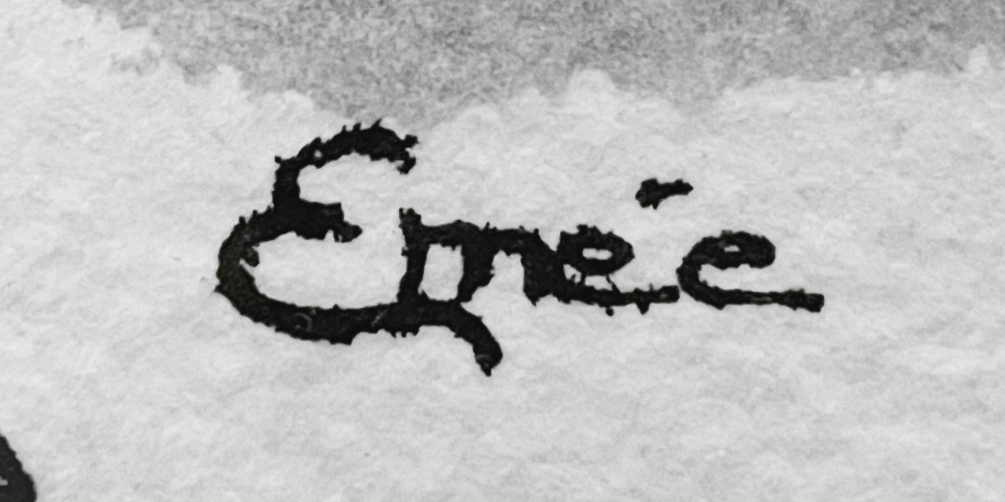 Emée